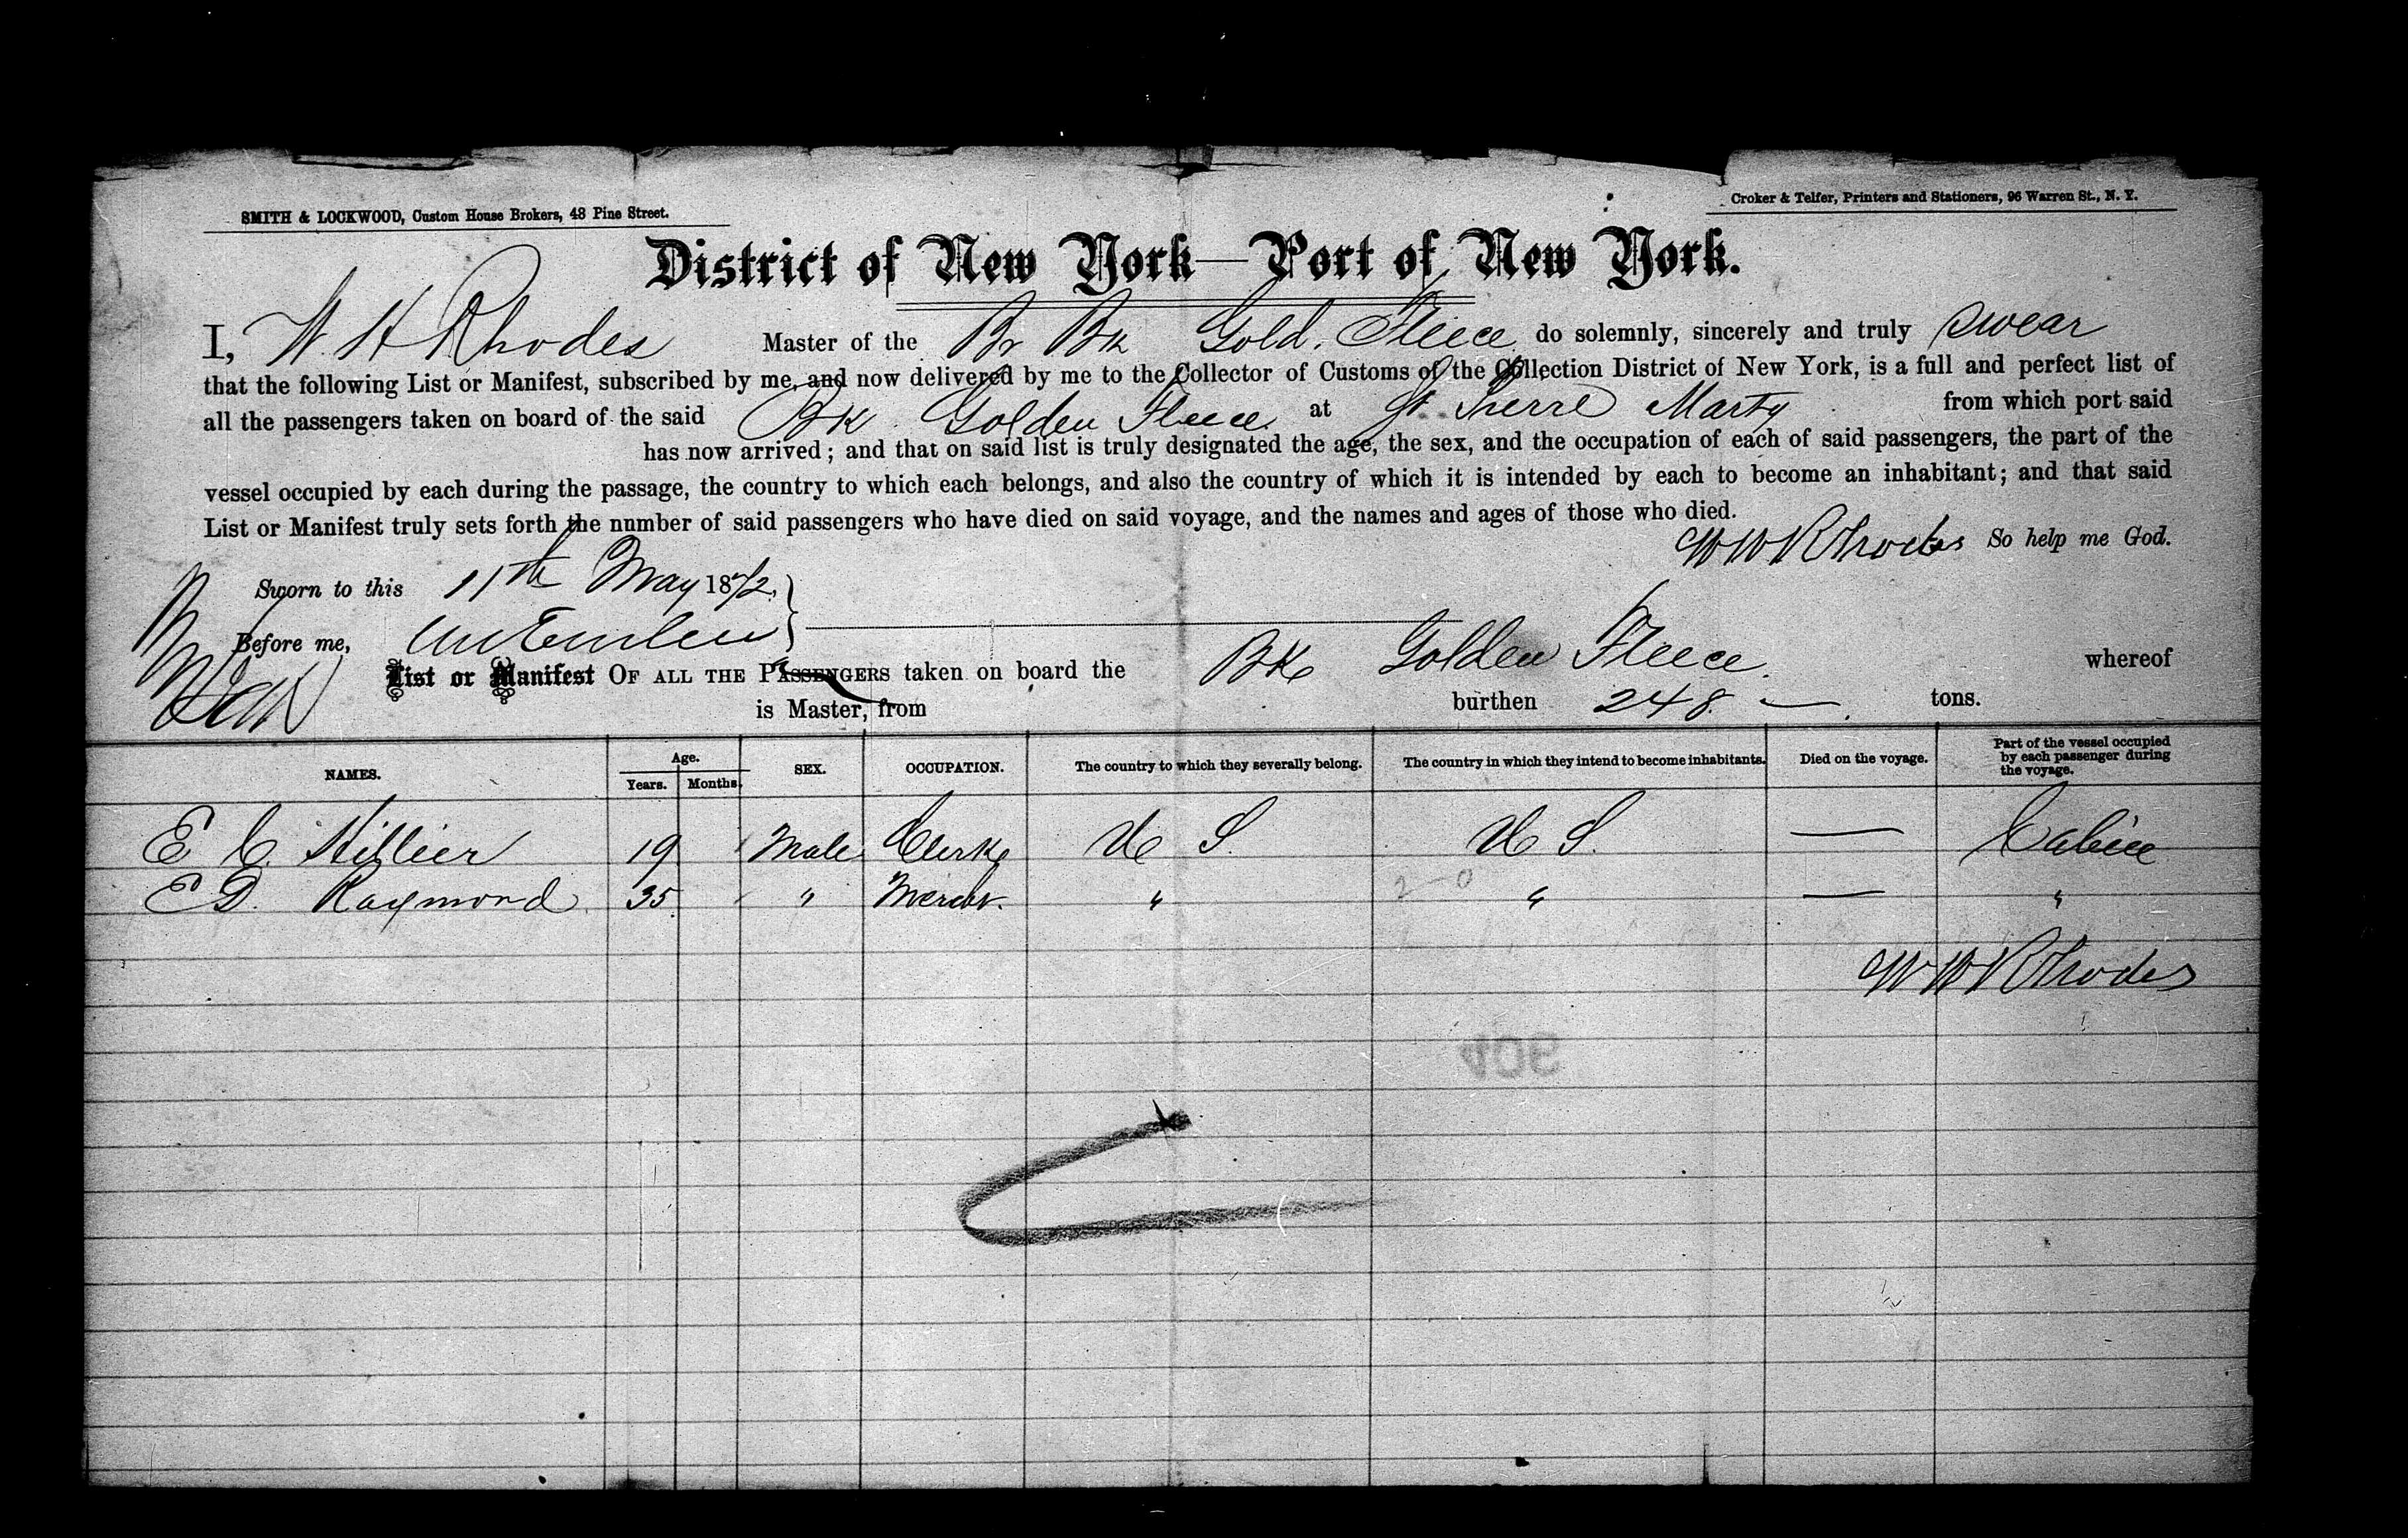 SMITH & LOCKWOOD, Custom House Brokers, 48 Pine Street.
Croker & Telfer, Printers and Stationers, 96 Warren St., N. Y.
District of New York—Port of New York.
I, W. H Rhodes Master of the Br Bk Gold. Fleece do solemnly, sincerely and truly swear
that the following List or Manifest, subscribed by me, and now delivered by me to the Collector of Customs of the Collection District of New York, is a full and perfect list of
all the passengers taken on board of the said Bk Golden Fleece at St Pierre Marty from which port said
has now arrived; and that on said list is truly designated the age, the sex, and the occupation of each of said passengers, the part of the
vessel occupied by each during the passage, the country to which each belongs, and also the country of which it is intended by each to become an inhabitant; and that said
List or Manifest truly sets forth the number of said passengers who have died on said voyage, and the names and ages of those who died.
W W Rhodes So help me God.
Sworn to this 11th May 1872.
Before me,
List or Manifest OF ALL THE PASSENGERS taken on board the Bk Golden Fleece. whereof
is Master, from burthen 248 — tons.
NAMES. Age. Years. Months. SEX. OCCUPATION. The country to which they severally belong. The country in which they intend to become inhabitants. Died on the voyage. Part of the vessel occupied by each passenger during the voyage.
E C. Hillier 19 Male Clerk U S. U S. — Cabin
E D. Raymond 35 " Mercht. " 2-0 " — "
W W Rhodes
904